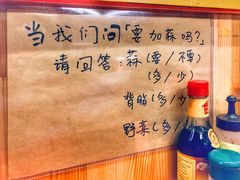 当我们问「要加蒜吗?」
请回答:蒜(要/不要)
(多/少)
背脂(多/少)
野菜(多/少)